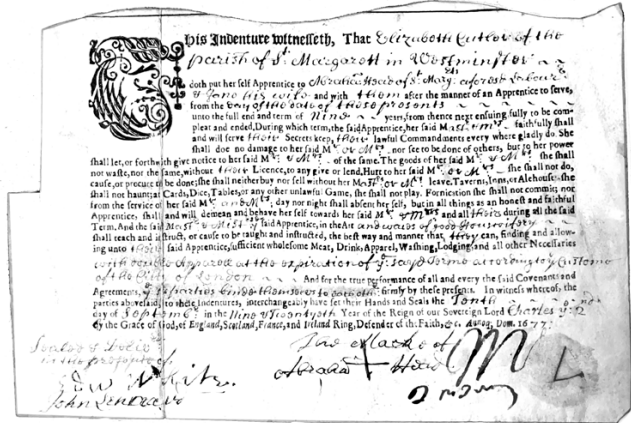 This Indenture witnesseth, That Elizabeth Cutler of the
parish of St. Margarett in Westminster
doth put her self Apprentice to Abraham of St. Mary
& Jane his wife and with them after the manner of an Apprentice to serve,
from the day of the date of these presents
unto the full end and term of Nine years, from thence next ensuing fully to be com-
pleat and ended, During which term, the said Apprentice, her said faithfully shall
and will serve their Secrets keep, their lawful Commandments every where gladly do. She
shall doe no damage to her said Mr. or Mrs. nor see to be done of others, but to her power
shall let, or forthwith give notice to her said Mr. & Mrs. of the same. The goods of her said Mr. & Mrs. she shall
not waste, nor the same, without their Licence, to any give or lend, Hurt to her said Mr. or Mrs. she shall not do,
cause, or procure to be done; she shall neither buy nor sell without her leave, Tavern, Inn, or Alehouse she
shall not haunt; at Cards, Dice, Tables, or any other unlawful Game, she shall not play. Fornication she shall not commit; nor
from the service of her said Mr. and Mrs. day nor night shall absent her self, but in all things as an honest and faithful
Apprentice, shall and will demean and behave her self towards her said Mr. & Mrs and all theirs during all the said
Term, And the said said Apprentice, in the Art and ways of good houswifery
shall teach and instruct, or cause to be taught and instructed, the best way and manner that they can, finding and allow-
ing unto their said Apprentice, sufficient wholesome Meat, Drink, Apparel, Washing, Lodging, and all other Necessaries
with double Apparell at the expiration of ye said Terme according to ye Custome
of the Citty of London And for the true performance of all and every the said Covenants and
Agreements, ye parties binde themselves to firmly by these present. In witness whereof, the
parties abovesaid, to these Indentures, interchangeably have set their Hands and Seals the Tenth
day of September in the Nine & Twentyeth Year of the Reign of our Sovereign Lord Charles ye 2d
by the Grace of God, of England, Scotland, France, and Ireland King, Defender of the Faith, &c. Annoq; Dom. 1677
Sealed & The Marke of
in the presence of
Abraham
John